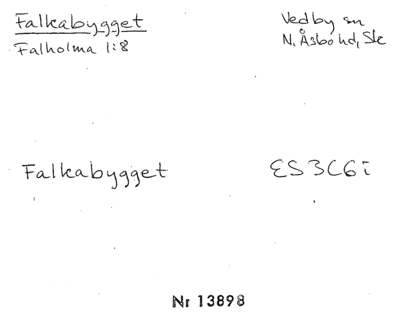 Falkabygget
Vedby sn
Falholma 1:8
N. Åsbo hd, Sk
Falkabygget
ES3C6i
Nr 13898